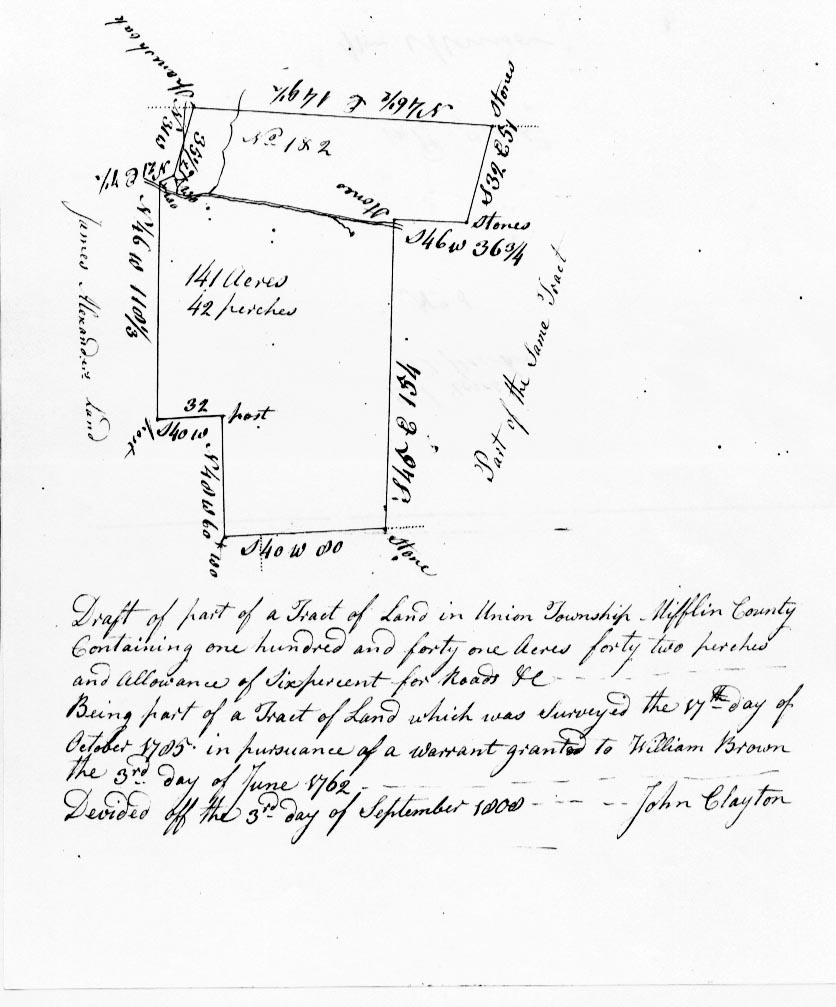 Spanish oak
N 46½ E 149½
Stones
N 31 W
35½
No 1 & 2
S 32 E 51
Stones
Stones
S 46 W 36¾
N 46 W 118⅓
James Alexanders Land
141 Acres
42 perches
Part of the Same Tract
S 48 E 154
32
post
post
S 40 W
N 48 W 60
WO
S 40 W 80
Stone
Draft of part of a Tract of Land in Union Township Mifflin County
Containing one hundred and forty one Acres forty two perches
and Allowance of Six percent for Roads &c
Being part of a Tract of Land which was Surveyed the 17th day of
October 1785 in pursuance of a warrant granted to William Brown
the 3rd day of June 1762
Devided off the 3rd day of September 1808 John Clayton